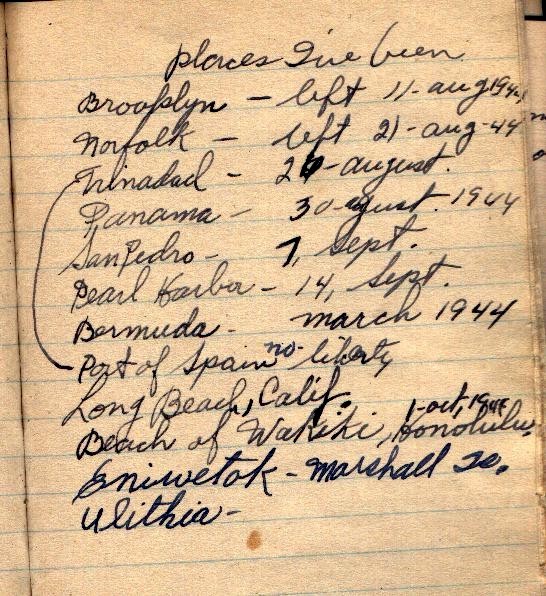 Places I've been
Brooplyn - left 11-aug 194
Norfolk - left 21-aug-44
Trinadad - 26-august.
Panama - 30-august. 1944
San Pedro - 7, sept.
Pearl Harbor - 14, sept.
Bermuda - march 1944
Port of Spain no-liberty
Long Beach, Calif.
Beach of Wakiki, Honolulu, 1-oct, 1944
Eniwetok - Marshall Is.
Ulithia -